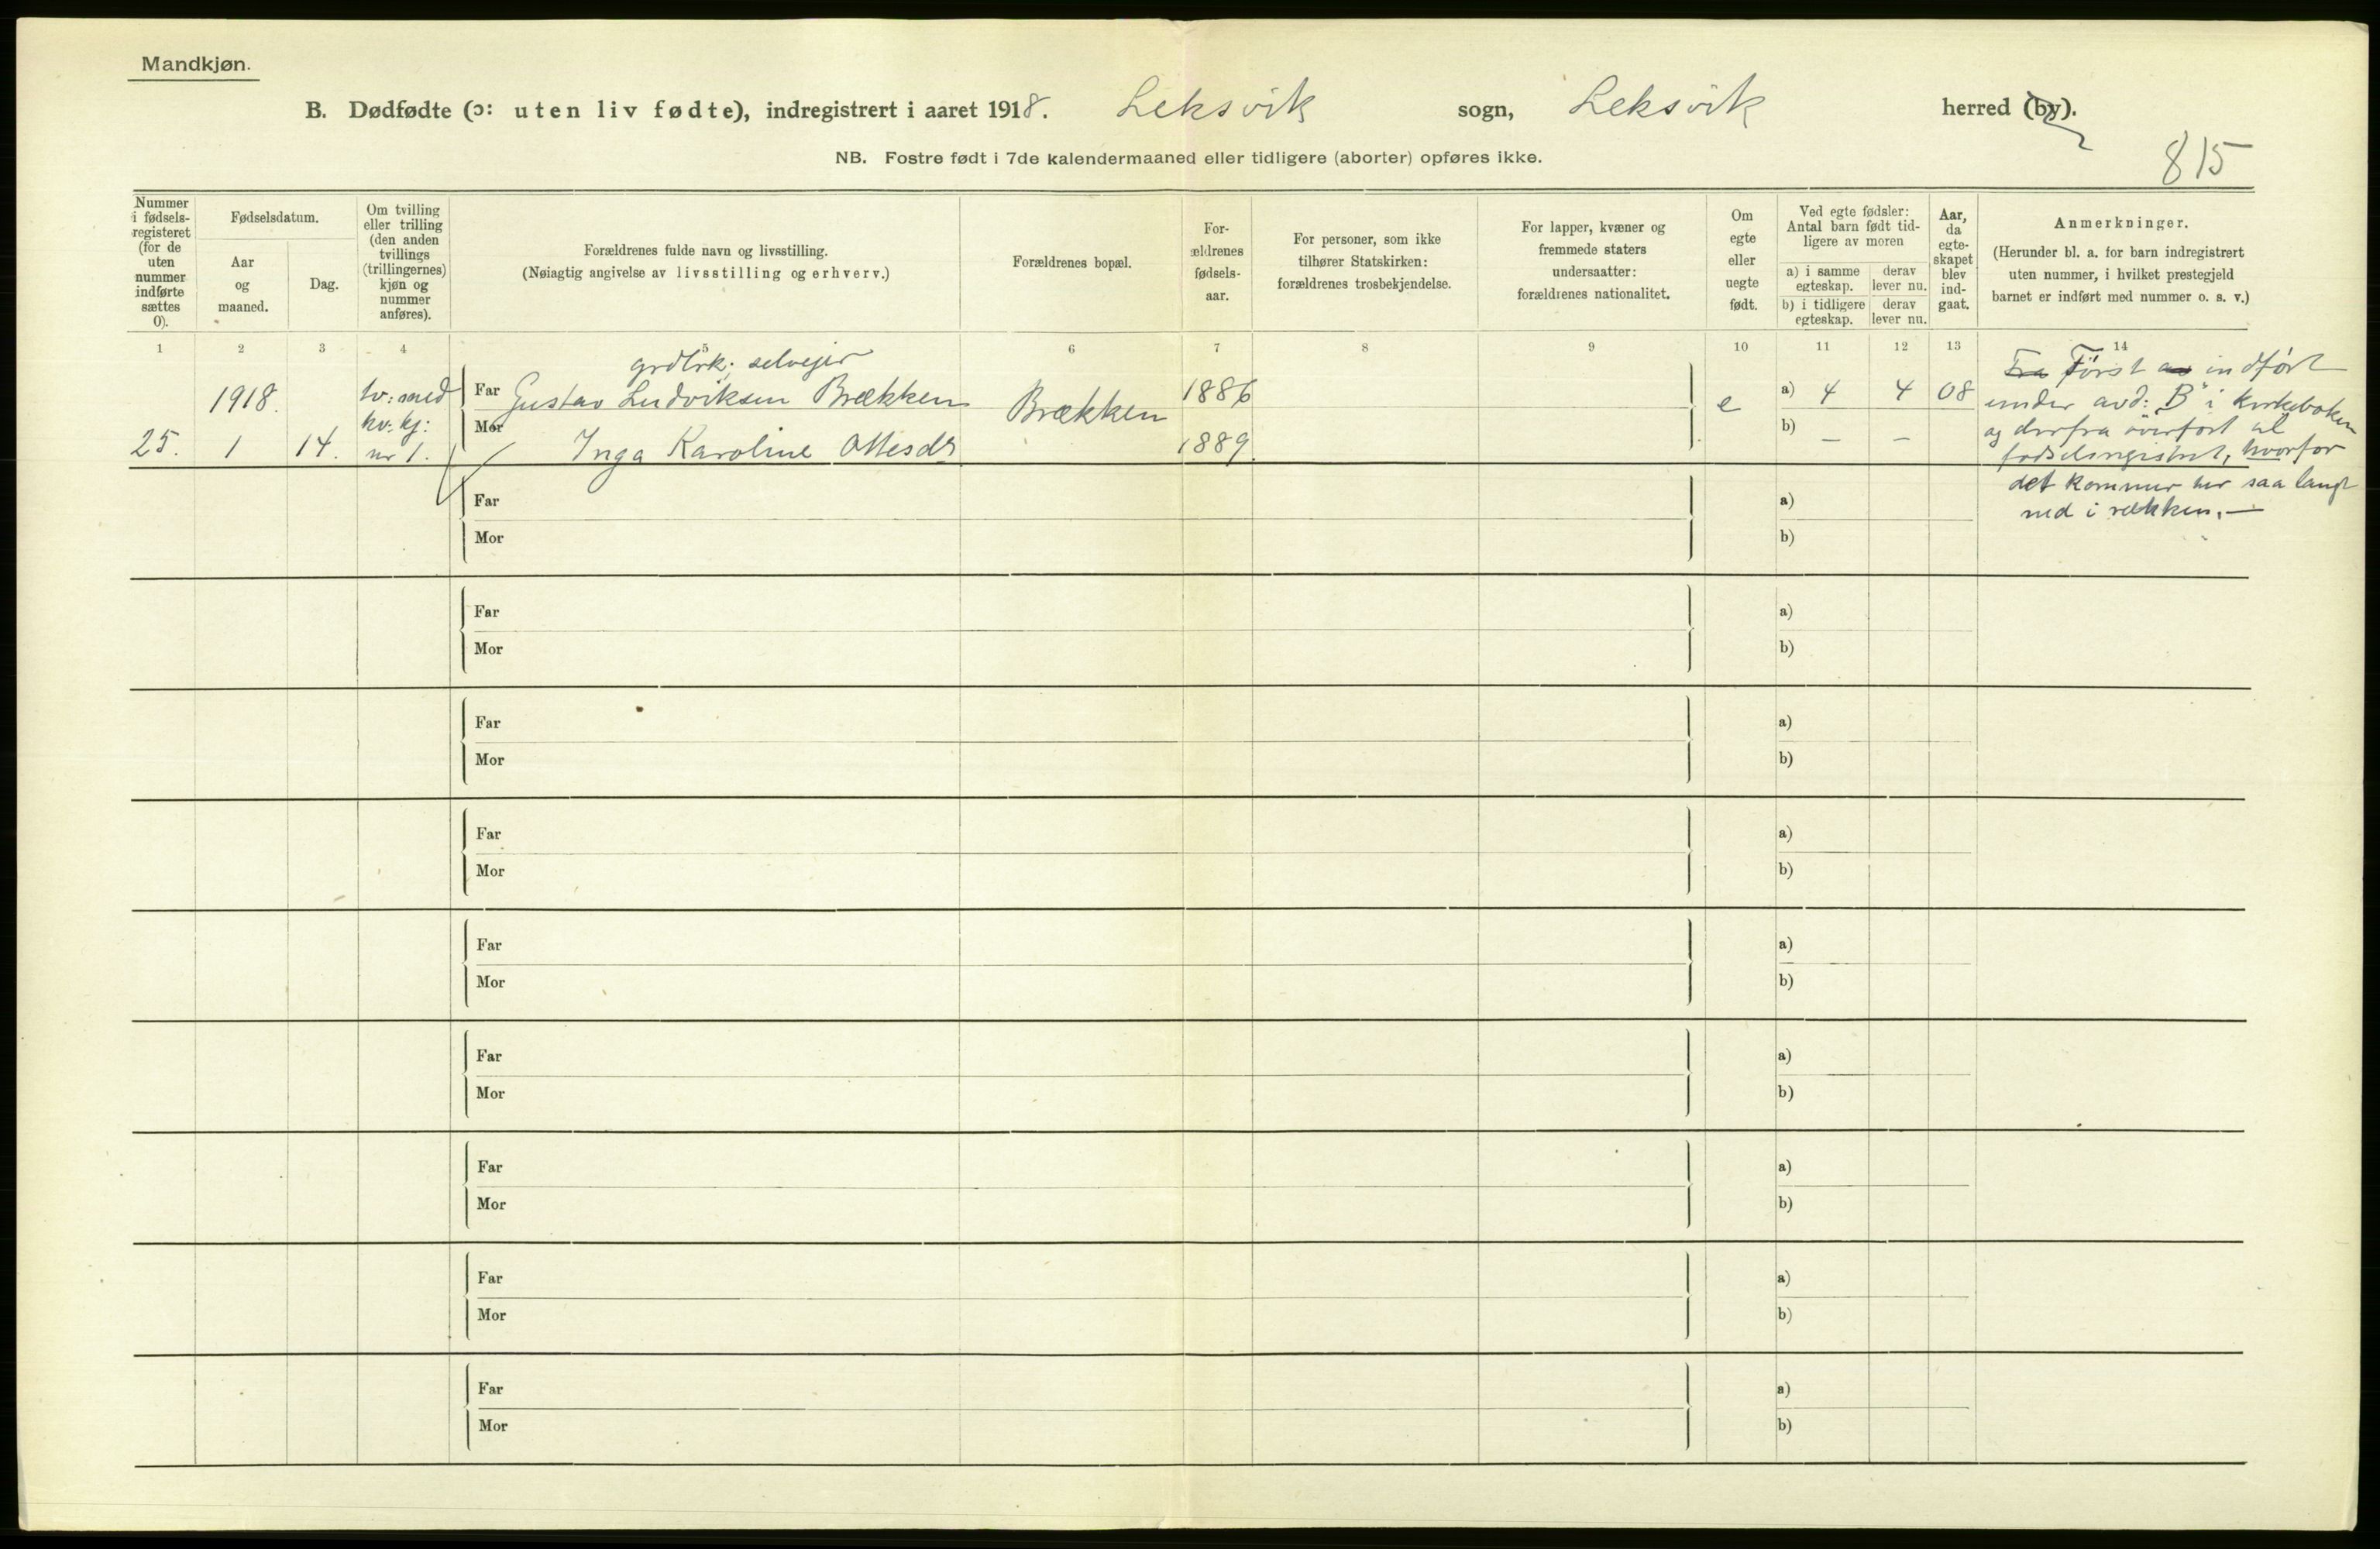 Mandkjøn.
B. Dødfødte (ɔ: uten liv fødte), indregistrert i aaret 1918. Leksvik sogn, Leksvik herred (by).
NB. Fostre født i 7de kalendermaaned eller tidligere (aborter) opføres ikke.
815
Nummer i fødselsregisteret (for de uten nummer indførte sættes 0).
Fødselsdatum.
Aar og maaned.
Dag.
Om tvilling eller trilling (den anden tvillings (trillingernes) kjøn og nummer anføres).
Forældrenes fulde navn og livsstilling.
(Nøiagtig angivelse av livsstilling og erhverv.)
Forældrenes bopæl.
Forældrenes fødselsaar.
For personer, som ikke tilhører Statskirken: forældrenes trosbekjendelse.
For lapper, kvæner og fremmede staters undersaatter: forældrenes nationalitet.
Om egte eller uegte født.
Ved egte fødsler: Antal barn født tidligere av moren
a) i samme egteskap. derav lever nu.
b) i tidligere egteskap. derav lever nu.
Aar, da egteskapet blev indgaat.
Anmerkninger.
(Herunder bl. a. for barn indregistrert uten nummer, i hvilket prestegjeld barnet er indført med nummer o. s. v.)
1 2 3 4 5 6 7 8 9 10 11 12 13 14
grdbrk; selveier
1918. tv: med Far Gustav Ludviksen Brækken Brækken 1886 e a) 4 4 08
kv: kj:
25. 1 14. nr 1. Mor Inga Karoline Ottesdr 1889. b) — —
Fra Først indført
under avd: "B" i kirkeboken
og derfra overført til
fødselsregistret, hvorfor
det kommer her saa langt
ned i rækken. —
Far a)
Mor b)
Far a)
Mor b)
Far a)
Mor b)
Far a)
Mor b)
Far a)
Mor b)
Far a)
Mor b)
Far a)
Mor b)
Far a)
Mor b)
Far a)
Mor b)